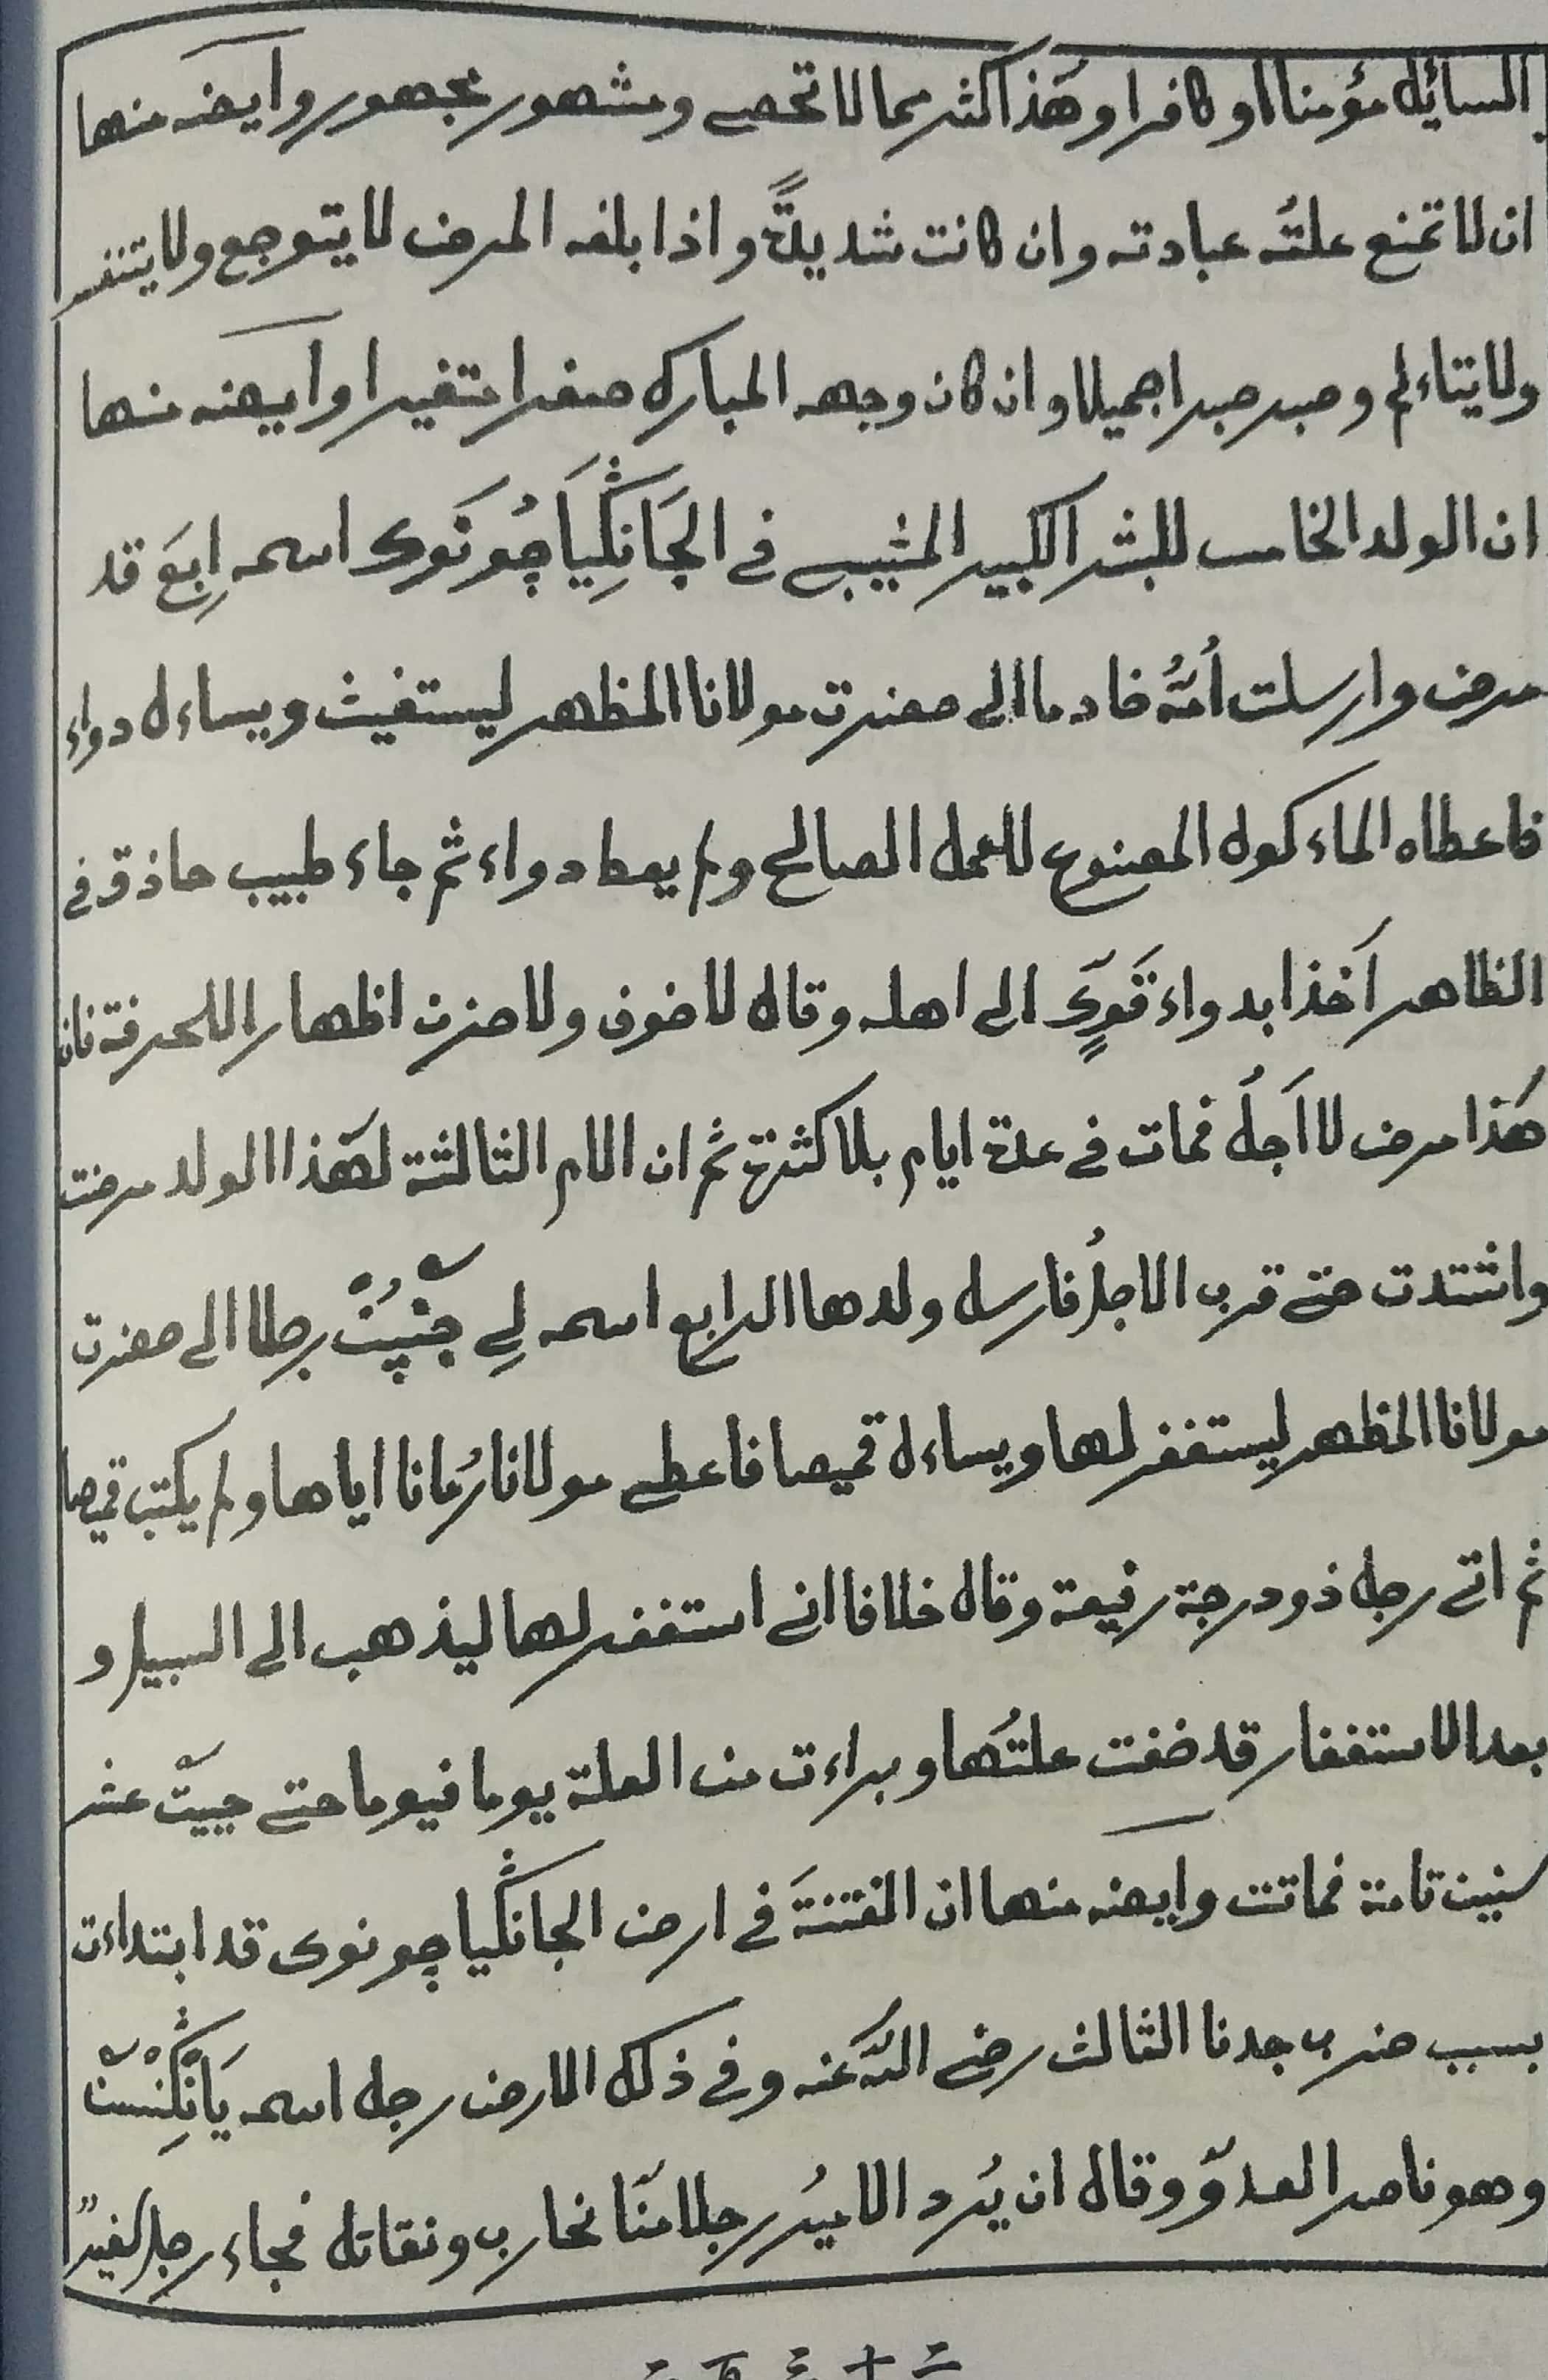 السائل مؤمنا او كافرا وهٰذا كثر مما لا تحصى ومشهور بجمهور وايضه منها
ان لا تمنع علتُه عبادته وان كانت شديدةً واذا بلغه المرض لا يتوجع ولا يتنفر
ولا يتاءلم وصبر صبرا جميلا وان كان وجهه المبارك صفرا متغيرا وايضه منها
ان الولد الخامس للبشر الكبير المشيبى فى الجَانكِيَاچُونَوى اسمه اِبعَ قد
مرض وارسلت اُمُّه خادما الى حضرت مولانا المظهر ليستغيث ويساءل دواء
فاعطاه الماء كول المصنوع للعمل الصالح ولم يعط دواء ثم جاء طبيب حاذق فى
الظاهر اَخذا بدواء قَوىٍّ الى اهله وقال لا خوف ولا حزن اظهارا للحرفة فان
هٰذا مرض لا اَجلُ فمات فى عدة ايام بلا كثرة ثم ان الام الثالثة لهٰذا الولد مرضت
واشتدت حتى قرب الاجلُ فارسل ولدها الرابع اسمه لِى رجلا الى حضرت
مولانا المظهر ليستغفر لها ويساءل قميصا فاعطى مولانا رُمانا اياها ولم يكتب قميصا
ثم اتى رجل ذو درجة رفيعة وقال خلافا انى استغفر لها ليذهب الى السبيل و
بعد الاستغفار قد خفت علتُها وبراءت من العلة يوما فيوما حتى حييتْ عشر
سنين تامة فماتت وايضه منها ان الفتنةَ فى ارض الجانكياچونوى قد ابتداءت
بسبب حرب جدنا الثالث رضى اللّه عَنه وفى ذلك الارض رجل اسمه
وهو ناصر العدوّ وقال ان يُرد الاميرُ رجلا منّا نحارب ونقاتل فجاء رجل